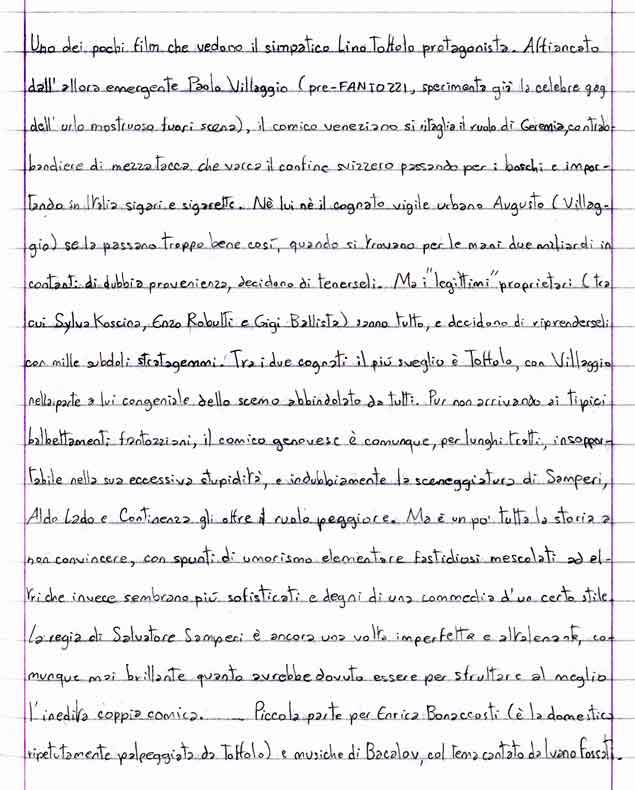 Uno dei pochi film che vedono il simpatico Lino Toffolo protagonista. Affiancato
dall'allora emergente Paolo Villaggio (pre-FANTOZZI, sperimenta già la celebre gag
dell'urlo mostruoso fuori scena), il comico veneziano si ritaglia il ruolo di Geremia, contrab-
bandiere di mezza tacca che varca il confine svizzero passando per i boschi e impor-
tando in Italia sigari e sigarette. Nè lui nè il cognato vigile urbano Augusto (Villag-
gio) se la passano troppo bene così, quando si trovano per le mani due miliardi in
contanti di dubbia provenienza, decidono di tenerseli. Ma i "legittimi" proprietari (tra
cui Sylva Koscina, Enzo Robutti e Gigi Ballista) sanno tutto, e decidono di riprenderseli
con mille subdoli stratagemmi. Tra i due cognati il più sveglio è Toffolo, con Villaggio
nella parte a lui congeniale dello scemo abbindolato da tutti. Pur non arrivando ai tipici
balbettamenti fantozziani, il comico genovese è comunque, per lunghi tratti, insoppor-
tabile nella sua eccessiva stupidità, e indubbiamente la sceneggiatura di Samperi,
Aldo Lado e Continenza gli offre il ruolo peggiore. Ma è un po' tutta la storia a
non convincere, con spunti di umorismo elementare fastidiosi mescolati ad al-
tri che invece sembrano più sofisticati e degni di una commedia d'un certo stile.
La regia di Salvatore Samperi è ancora una volta imperfetta e altalenante, co-
munque mai brillante quanto avrebbe dovuto essere per sfruttare al meglio
l'inedita coppia comica. __ Piccola parte per Enrica Bonaccorti (è la domestica
ripetutamente palpeggiata da Toffolo) e musiche di Bacalov, col tema cantato da Ivano Fossati.